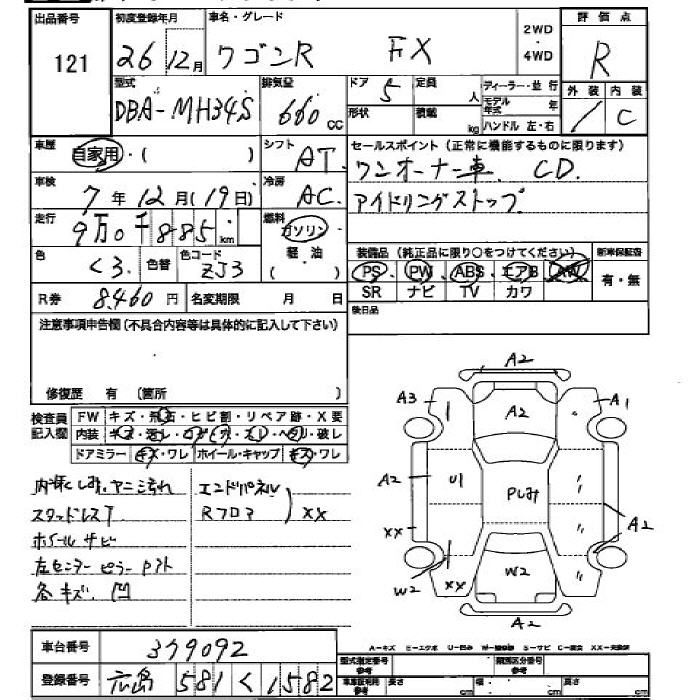 出品番号 初度登録年月 車名・グレード 2WD・4WD 評価点
121 26年12月 ワゴンR FX R
型式 排気量 ドア 5 定員 人 ディーラー・並行 外装 内装
DBA-MH34S 660cc 形状 積載 kg モデル年式 年 ハンドル 左・右 / C
車歴 自家用・( ) シフト AT セールスポイント (正常に機能するものに限ります)
車検 7年12月(19日) 冷房 AC ワンオーナー車 CD.
走行 9万0千885km 燃料 ガソリン・軽油( ) アイドリングストップ
色 クロ 色替 色コード ZJ3 装備品 (純正品に限り○をつけてください) 新車保証書
PS PW ABS エアB AW 有・無
R券 8460円 名変期限 月 日 SR ナビ TV カワ
注意事項申告欄 (不具合内容等は具体的に記入して下さい) 後日品
修復歴 有 (箇所 )
検査員記入欄 FW キズ・飛石・ヒビ割・リペア跡・X要
内装 キズ・汚レ・コゲ・穴・スレ・ヘタリ・破レ
ドアミラー キズ・ワレ ホイール・キャップ キズ・ワレ
内張くしみ、ヤニ汚れ エンドパネル
スタッドレスT Rフロア XX
ホイールサビ
左センターピラー
各キズ凹
A2
A3 A2 A1
A2 U1 Pしみ
XX A2
W2 XX W2
A2
車台番号 379092
A-キズ E-エクボ U-凹み S-サビ
登録番号 広島 581 く 1582
型式指定番号 類別区分番号
参考 長さ cm 幅 cm 高さ cm